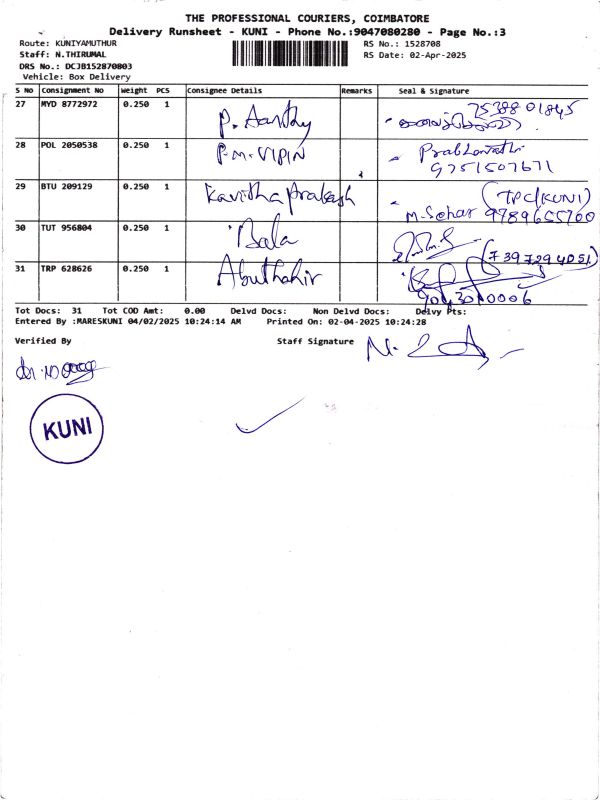 THE PROFESSIONAL COURIERS, COIMBATORE
Delivery Runsheet - KUNI - Phone No.:9047080280 - Page No.:3
Route: KUNIYAMUTHUR RS No.: 1528708
Staff: N.THIRUMAL RS Date: 02-Apr-2025
DRS No.: DCJB152870803
Vehicle: Box Delivery
S No Consignment No Weight PCS Consignee Details Remarks Seal & Signature
27 MYD 8772972 0.250 1 P. Aarthy 75388 01845
28 POL 2050538 0.250 1 P.M.VIPIN Prabhavathi
9751507671
29 BTU 209129 0.250 1 Kavitha prakash (TPC/KUNI)
M.Sekar 9789655700
30 TUT 956804 0.250 1 Bala (7397294051)
31 TRP 628626 0.250 1 Abuthahir
Tot Docs: 31 Tot COD Amt: 0.00 Delvd Docs: Non Delvd Docs: Delvy Pts:
Entered By :MARESKUNI 04/02/2025 10:24:14 AM Printed On: 02-04-2025 10:24:28
Verified By Staff Signature
KUNI